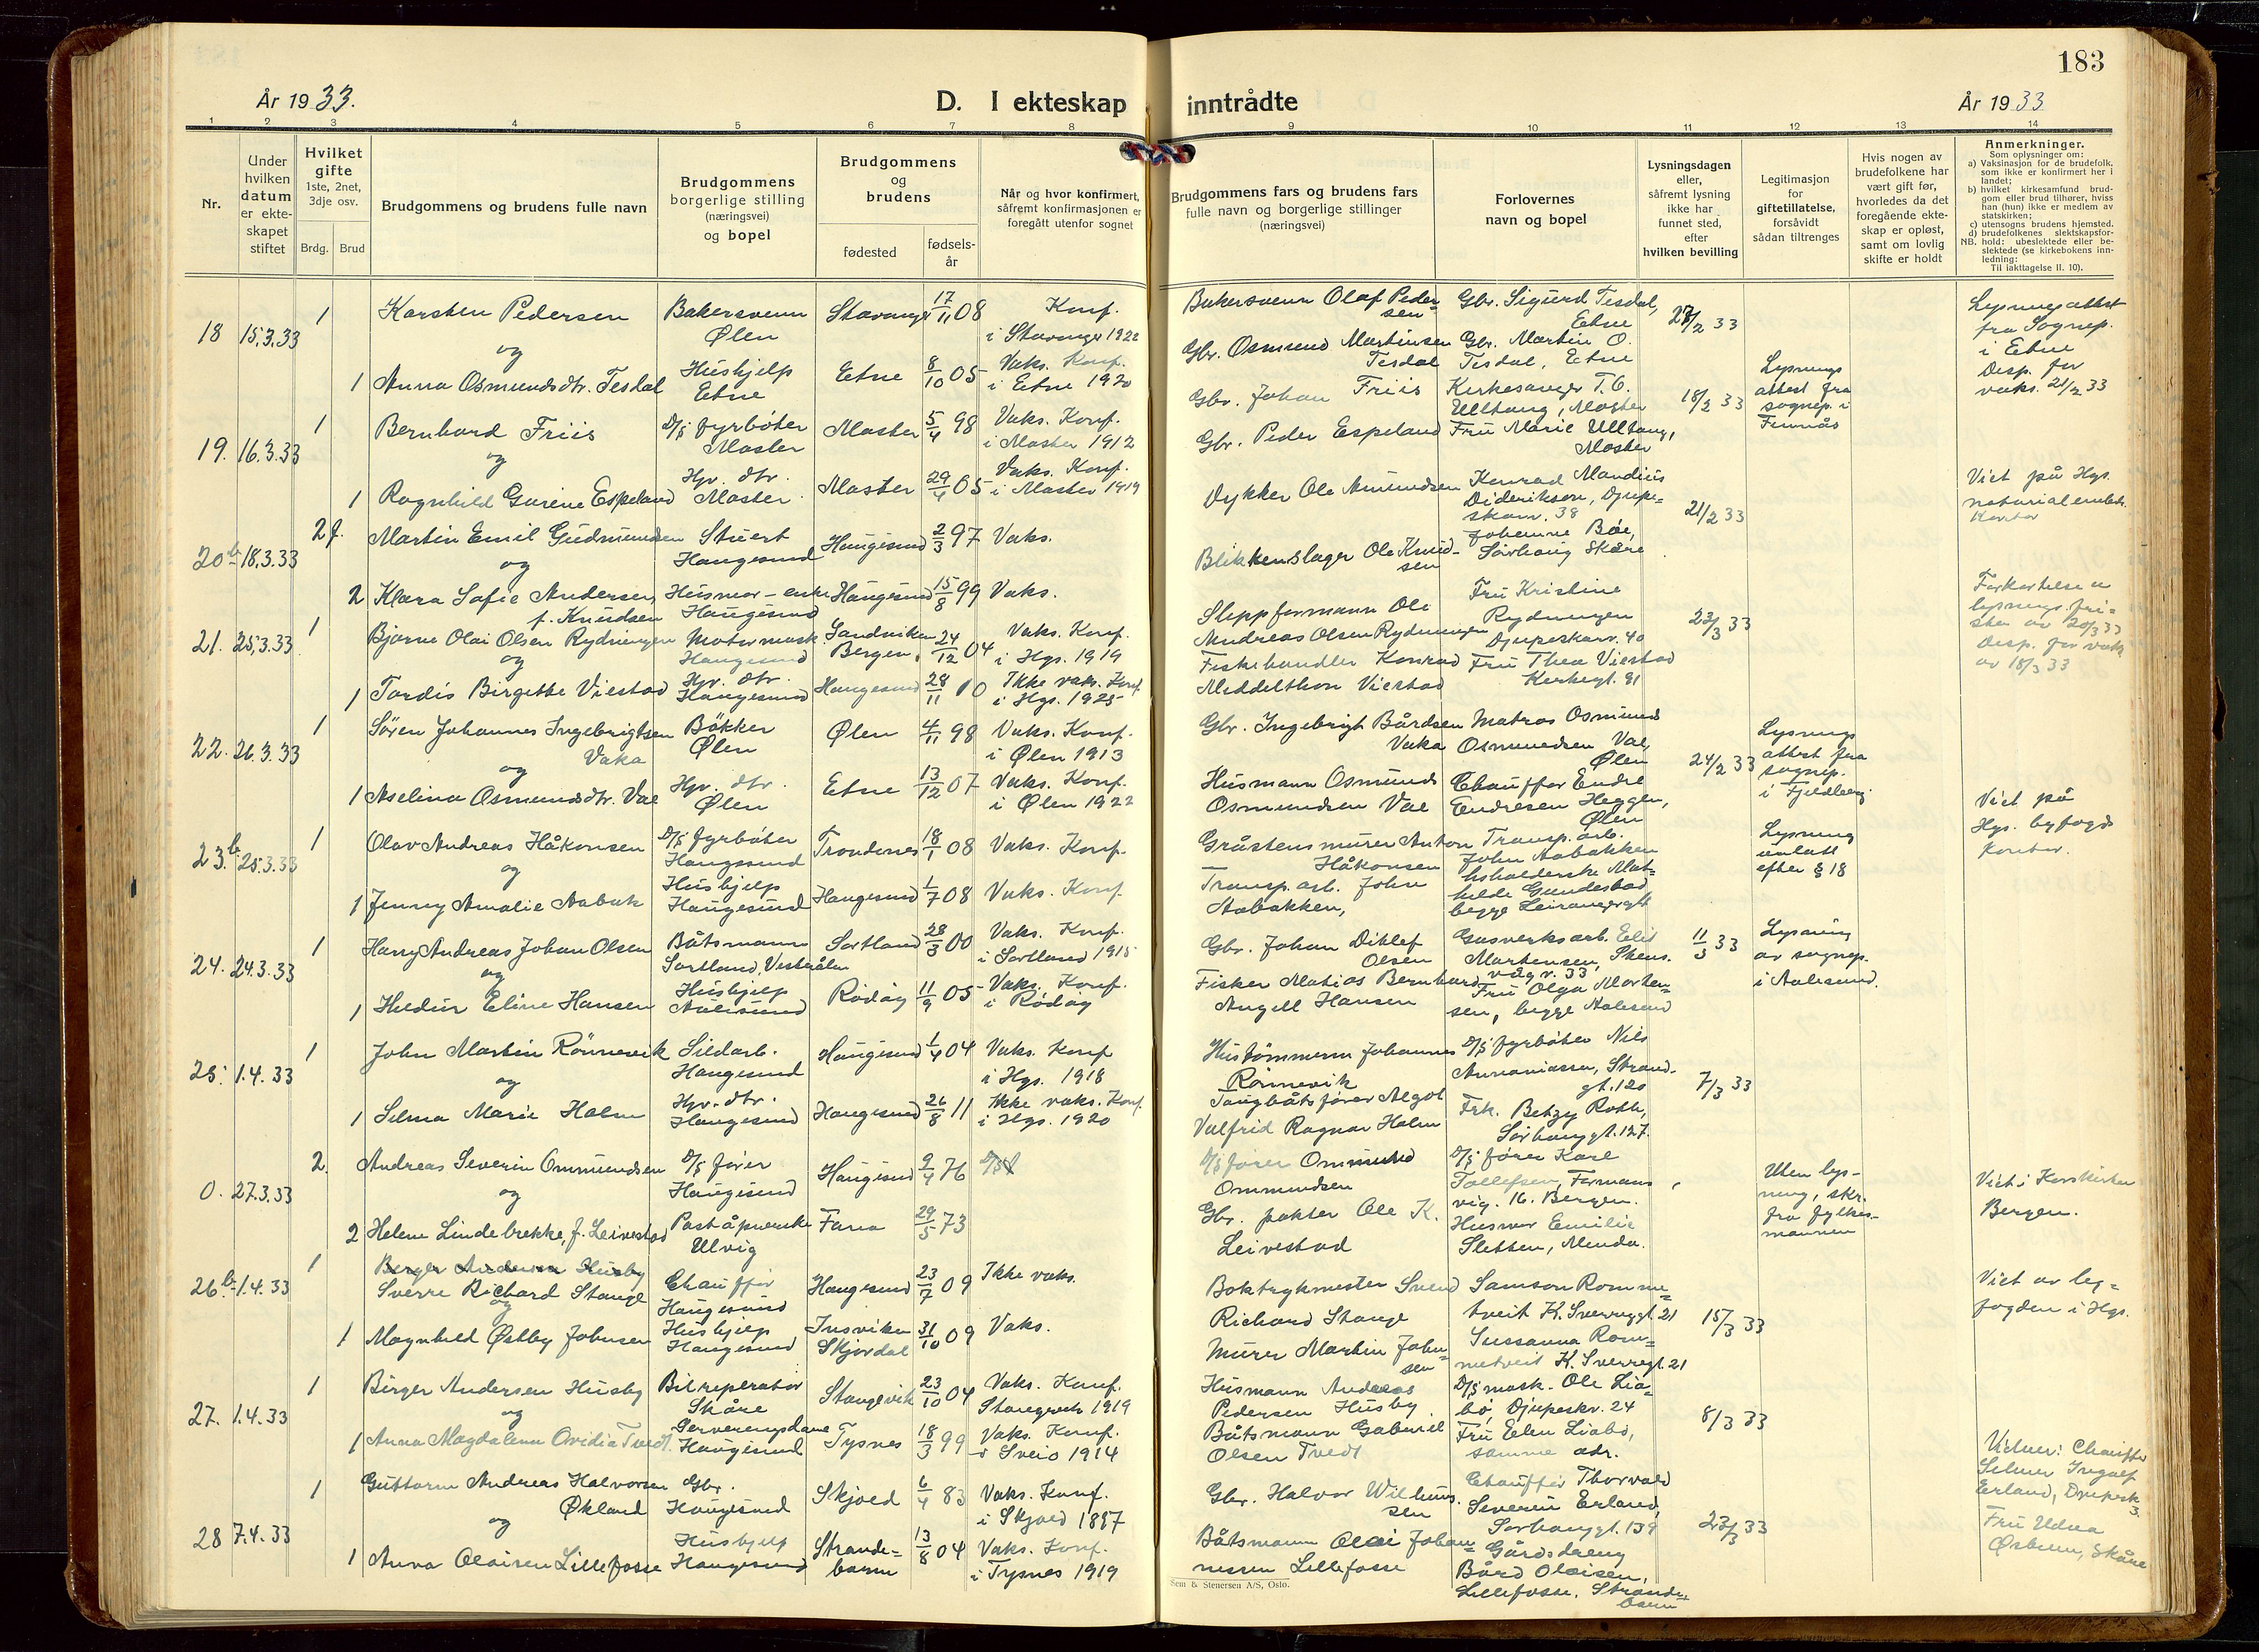 183
År 1933.
D. I ekteskap inntrådte
År 1933
1 2 3 4 5 6 7 8 9 10 11 12 13 14
Nr.
Under hvilken datum er ekteskapet stiftet
Hvilket gifte
1ste, 2net, 3dje osv.
Brdg. Brud
Brudgommens og brudens fulle navn
Brudgommens borgerlige stilling (næringsvei) og bopel
Brudgommens og brudens
fødested
fødsels-år
Når og hvor konfirmert, såfremt konfirmasjonen er foregått utenfor sognet
Brudgommens fars og brudens fars fulle navn og borgerlige stillinger (næringsvei)
Forlovernes navn og bopel
Lysningsdagen eller, såfremt lysning ikke har funnet sted, efter hvilken bevilling
Legitimasjon for giftetillatelse, forsåvidt sådan tiltrenges
Hvis nogen av brudefolkene har vært gift før, hvorledes da det foregående ekteskap er opløst, samt om lovlig skifte er holdt
Anmerkninger.
Som oplysninger om:
a) Vaksinasjon for de brudefolk, som ikke er konfirmert her i landet;
b) hvilket kirkesamfund brudgom eller brud tilhører, hviss han (hun) ikke er medlem av statskirken;
c) utensogns brudens hjemsted.
d) brudefolkenes slektskapsfor-
NB. hold: ubeslektede eller beslektede (se kirkebokens innledning:
Til iakttagelse II. 10).
18 15.3.33
1 Karsten Pedersen Bakersvenn Ølen Stavanger 17/11 08 Konf. i Stavanger 1922
og
1 Anna Osmundsdtr. Tesdal Hushjelp Etne Etne 8/10 05 Vaks. Konf. i Etne 1920
Bakersvenn Olaf Pedersen
Gbr. Osmund Martinsen Tesdal
Gbr. Sigurd Tesdal, Etne
Gbr. Martin O. Tesdal, Etne
27/2 33
Lysningsattest fra Sognep. i Etne
Desp. for vaks. 21/2 33
19. 16.3.33
1 Bernhard Friis D/S fyrbøter Moster Moster 5/4 98 Vaks. Konf. i Moster 1912
og
1 Ragnhild Gurine Espeland Hgr. dtr. Moster Moster 29/4 05 Vaks. Konf. i Moster 1919
Gbr. Johan Friis
Gbr. Peder Espeland
Kirkesanger T. O. Ulltang, Moster
Fru Marie Ulltang, Moster
18/2 33
Lysningsattest fra sognep. i Finnås
20b 18.3.33
2 f. Martin Emil Gudmundsen Stuert Haugesund Haugesund 2/3 97 Vaks.
og
2 Klara Sofie Andersen, f. Knudsen Husmor - enke Haugesund Haugesund 15/8 99 Vaks.
Dykker Ole Amundsen
Blikkenslager Ole Knudsen
Konrad Mandius Dideriksen, Djupeskarv. 38
Johanne Bøe, Sørhaug Skåre
21/2 33
Viet på Hgs. notarialembets Kontor
21. 25.3.33
1 Bjarne Olai Olsen Rydningen Motormask. Haugesund Sandviken Bergen, 24/12 04 Vaks. Konf. i Hgs. 1919
og
1 Tordis Birgitte Viestad Hgr. dtr. Haugesund Haugesund 28/11 10 Ikke vaks. Konf. i Hgs. 1925
Slippformann Ole Andreas Olsen Rydningen
Fiskehandler Konrad Middelthon Viestad
Fru Kristine Rydningen Djupeskarv. 40
Fru Thea Viestad Kirkegt. 91
23/3 33
Forkortelse av lysningsfristen av 20/3 33
Desp. for vaks. av 18/3 33
22. 26.3.33
1 Sören Johannes Ingebrigtsen Vaka Bøkker Ølen Ølen 4/11 98 Vaks. Konf. i Ølen 1913
og
1 Aselina Osmundsdtr. Vae Hgr. dtr. Ølen Etne 13/12 07 Vaks. Konf. i Ølen 1922
Gbr. Ingebrigt Bårdsen Vaka
Husmann Osmund Osmundsen Vae
Matros Osmund Osmundsen Vae, Ølen
Chauffør Endre Endresen Heggen, Ølen
24/2 33
Lysningsattest fra sognep. i Fjeldberg
23.b 25.3.33
1 Olav Andreas Håkonsen D/S fyrbøter Haugesund Trondenes 18/1 08 Vaks. Konf.
og
1 Jenny Amalie Aabak Hushjelp Haugesund Haugesund 1/7 08 Vaks. Konf.
Gråstensmurer Anton Håkonsen
Transp. arb. John Aabakken,
Transp. arb. John Aabakken
Husholderske Mathilde Gundestad
begge Leirangergt
Lysning unlatt efter § 18
Viet på Hgs. byfogds Kontor.
24. 24.3.33
1 Harry Andreas Johan Olsen Båtsmann Sortland, Vesterålen Sortland 28/3 00 Vaks. Konf. i Sortland 1915
og
1 Heldur Eline Hansen Hushjelp Aalesund Rødøy 11/9 05 Vaks. Konf. i Rødøy
Gbr. Johan Ditlef Olsen
Fisker Matias Bernhard Angell Hansen
Gasverksarb. Elis Martensen, Skens. veg v. 33
Fru Olga Mortensen, begge Aalesund
11/3 33
Lysning av sognep. i Aalesund.
25. 1.4.33
1 John Martin Rönnevik Sildarb. Haugesund Haugesund 1/4 04 Vaks. Konf i Hgs. 1918
og
1 Selma Marie Holm Hgr. dtr. Haugesund Haugesund 26/8 11 Ikke vaks. Konf. i Hgs. 1920
Hustømmerm Johannes Rönnevik
Taugbåtsfører Algot Valfrid Ragnar Holm
D/S fyrbøter Nils Annaniassen, Strandgt. 120
Frk. Betzy Roth, Sørhauggt. 127.
7/3 33
0. 27.3.33
2. Andreas Severin Ommundsen D/S fører Haugesund Haugesund 9/4 76
og
2 Helene Lindebrekke, f. Leivestad Poståpnerske Ulvig Fana 29/5 73
D/S fører Ommund Ommundsen
Gbr. pakter Ole K. Leivestad
D/S fører Karl Tollefsen, Formannsvig. 16. Bergen.
Husmor Emilie Sletten, Minde.
Uten lysning, skr. fra fylkesmannen
Viet i Korskirken Bergen.
26b 1.4.33
Berger Andersen Husby
1 Sverre Richard Stange Chauffør Haugesund Haugesund 23/7 09 Ikke vaks.
og
1 Magnhild Østby Johnsen Hushjelp Haugesund Insviken Skjerdal 31/10 09 Vaks.
Boktrykmester Svend Richard Stange
Murer Martin Johnsen
Samson Rommetveit K. Sverregt. 21
Sussanna Rommetveit K. Sverregt. 21
15/3 33
Viet av byfogden i Hgs.
27. 1.4.33
1 Birger Andersen Husby Bilreperatør Skåre Stangvik 23/10 04 Vaks. Konf. Stangvik 1919
og
1 Anna Magdalena Ovidia Tvedt. Serveringsdame Haugesund Tysnes 18/3 99 Vaks. Konf. i Sveio 1914
Husmann Andreas Pedersen Husby
Båtsmann Gabriel Olsen Tvedt
D/S mask. Ole Liabø, Djupeskv. 24
Fru Elen Liabø, samme adr.
8/3 33
28 7.4.33
1 Guttorm Andreas Halvorsen Økland Gbr. Haugesund Skjold 6/4 83 Vaks. Konf. i Skjold 1897
og
1 Anna Olaisen Lillefosse Hushjelp Haugesund Strandebarm 13/8 04 Vaks. Konf. i Tysnes 1919
Gbr. Halvor Wilhelmsen
Båtsmann Olai Johannessen Lillefosse
Chauffør Thorvald Severin Erland, Sørhauggt. 139
Gårdsdreng Bård Olaisen, Lillefosse. Strandebarm
23/3 33
Vidner: Chauffør Selmer Ingolf Erland, Djupesk. 3.
Fru Udna Østrem, Skåre
Sem & Stenersen A/S, Oslo.